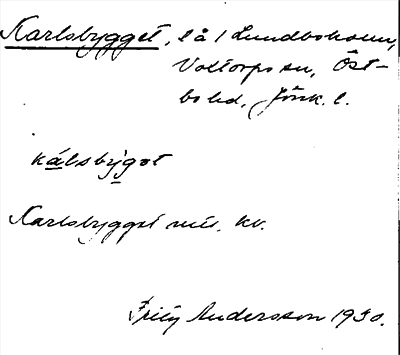 Karlsbygget, lå i Lundboholm,
Voltorps sn, Öst-
bo hd, Jönk. l.
kálsbýgət
Karlsbygget
kv.
Frity Andersson 1930.